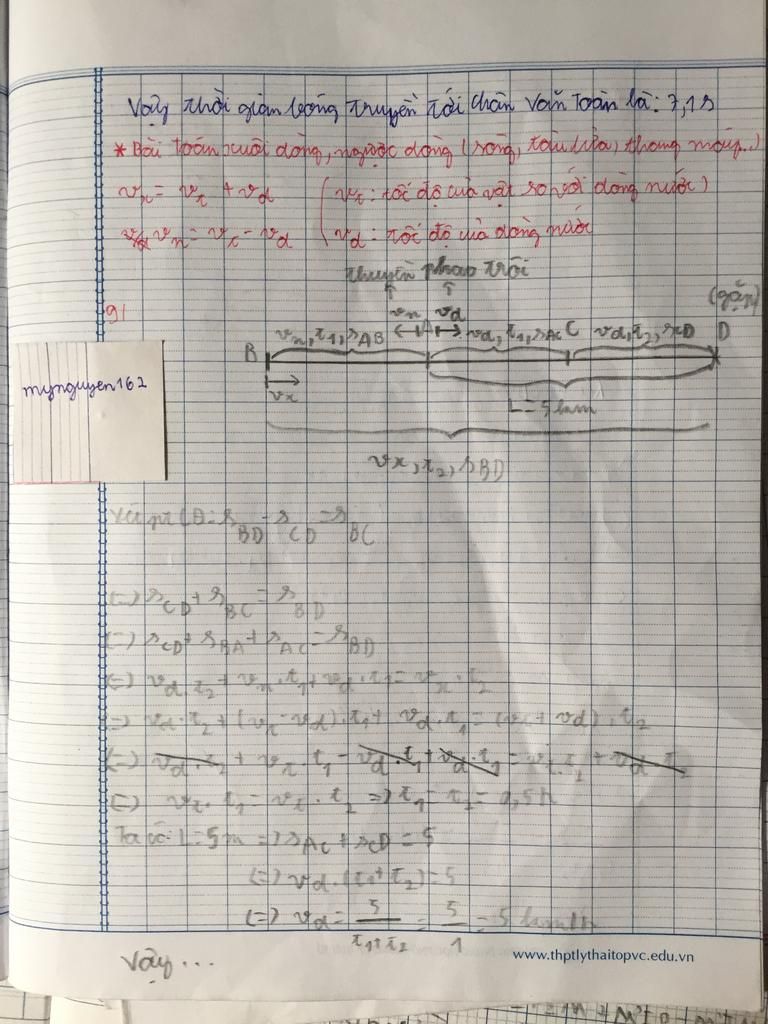 Vậy thời gian bóng truyền tới chân Văn Toàn là: 7,1s
* Bài toán xuôi dòng, ngược dòng (sông, tàu lửa, thang máy...)
vx = vr + vd (vr: tốc độ của vật so với dòng nước)
vn = vr - vd vd: tốc độ của dòng nước
thuyền phao trôi
(gặp)
9/
vn vd
B vn, t1, sAB A vd, t1, sAC C vd, t2, sCD D
vx
L = 5 km
mynguyen162
vx, t2, sBD
sBD - sCD = sBC
(=) sCD + sBC = sBD
(=) sCD + sBA + sAC = sBD
(=) vd.t2 + vn.t1 + vd.t1 = vx.t2
(=) vd.t2 + (vr - vd).t1 + vd.t1 = (vr + vd).t2
(=) vd.t2 + vr.t1 - vd.t1 + vd.t1 = vr.t2 + vd.t2
(=) vr.t1 = vr.t2 => t1 = t2 = 0,5h
Ta có: L = 5m => sAC + sCD = 5
(=) vd.(t1 + t2) = 5
(=) vd = 5/(t1 + t2) = 5/1 = 5 km/h
Vậy ...
www.thptlythaitopvc.edu.vn